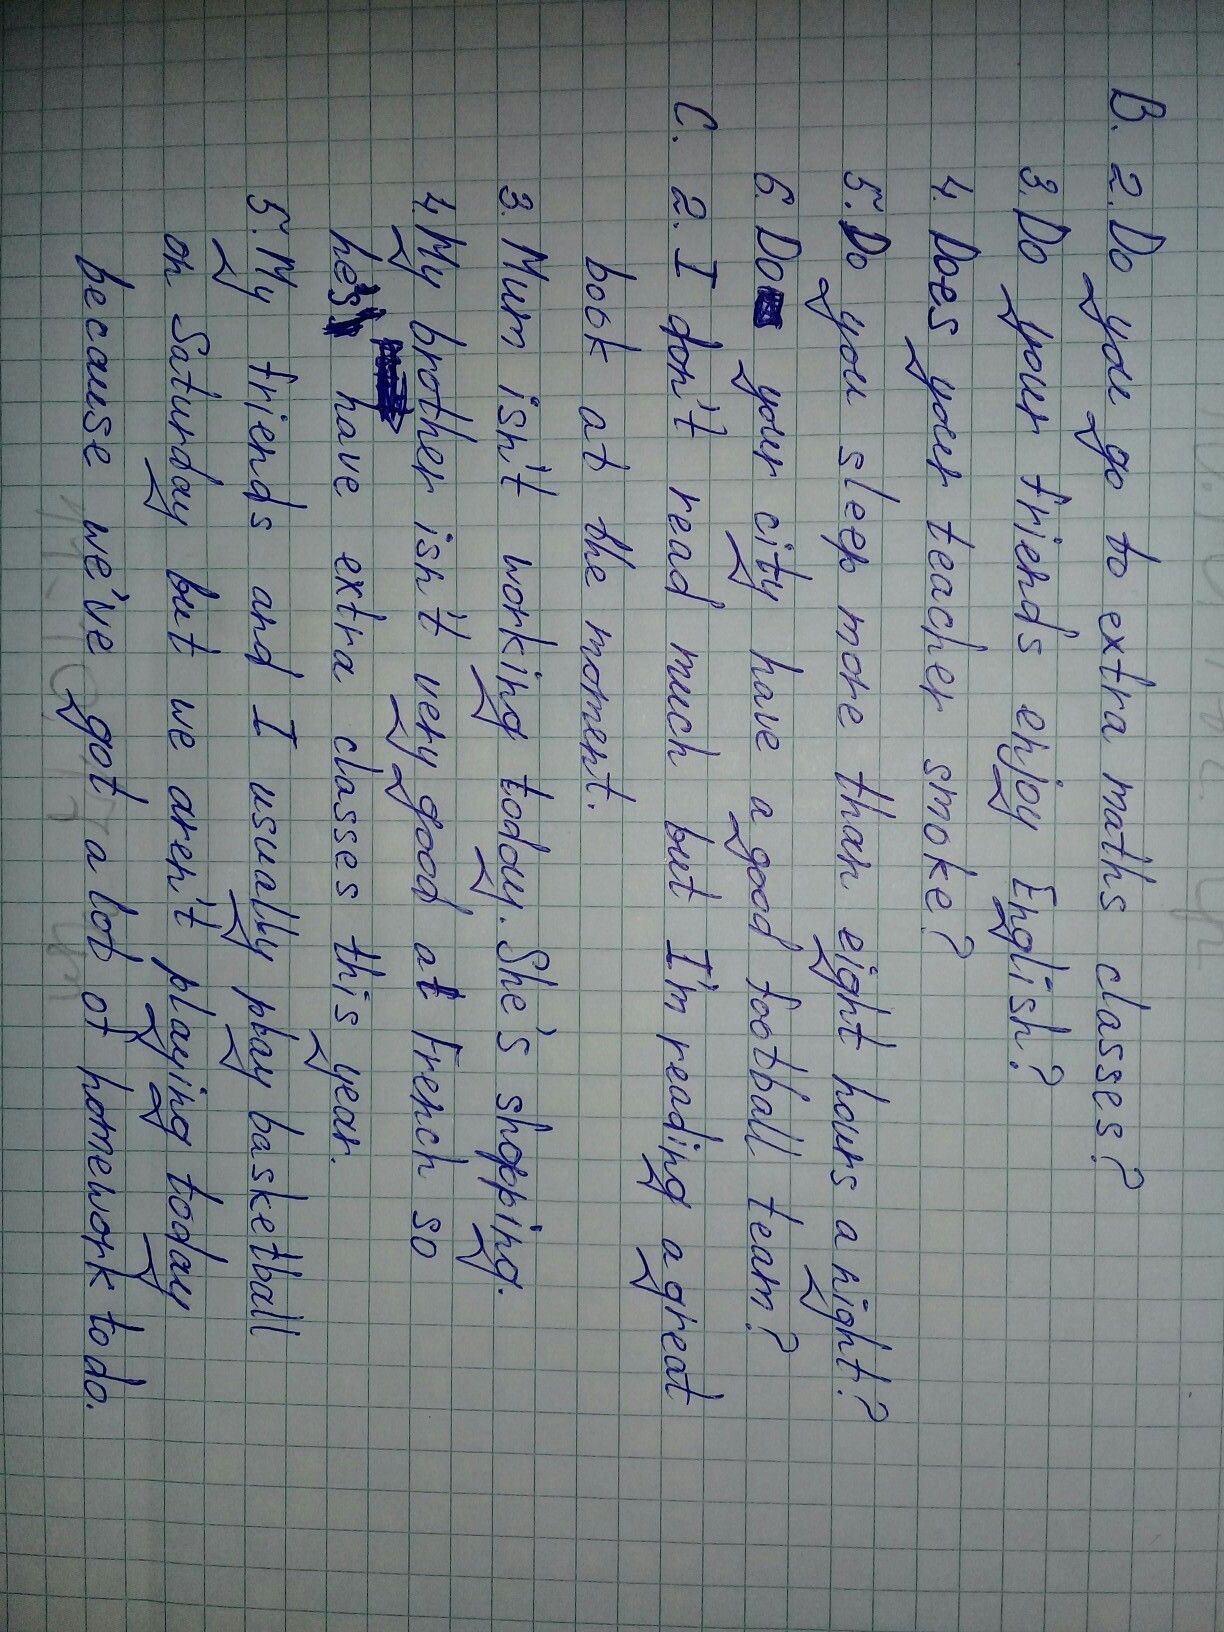 B. 2. Do you go to extra maths classes?
3. Do your friends enjoy English?
4. Does your teacher smoke?
5. Do you sleep more than eight hours a night?
6. Do your city have a good football team?
C. 2. I don't read much but I'm reading a great
book at the moment.
3. Mum isn't working today. She's shopping.
4. My brother isn't very good at French so
he's have extra classes this year.
5. My friends and I usually play basketball
on Saturday but we aren't playing today
because we've got a lot of homework to do.